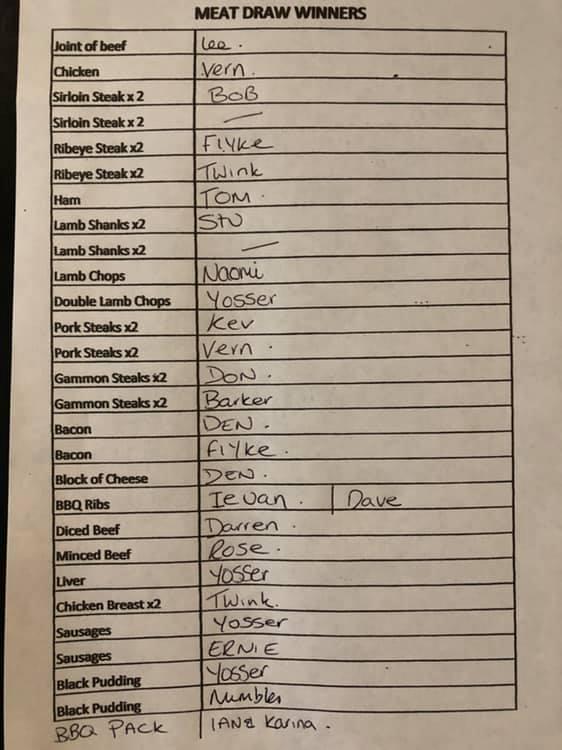 MEAT DRAW WINNERS
Joint of beef Lee.
Chicken Vern.
Sirloin Steak x 2 BOB
Sirloin Steak x 2 —
Ribeye Steak x2 Flyke
Ribeye Steak x2 Twink
Ham TOM.
Lamb Shanks x2 Stu
Lamb Shanks x2 —
Lamb Chops Naomi
Double Lamb Chops Yosser
Pork Steaks x2 Kev
Pork Steaks x2 Vern.
Gammon Steaks x2 DON.
Gammon Steaks x2 Barker
Bacon DEN.
Bacon Flyke.
Block of Cheese DEN.
BBQ Ribs Ieuan. | Dave
Diced Beef Darren.
Minced Beef Rose.
Liver Yosser
Chicken Breast x2 Twink.
Sausages Yosser
Sausages ERNIE
Black Pudding Yosser
Black Pudding Numbles
BBQ PACK IAN & Karina.